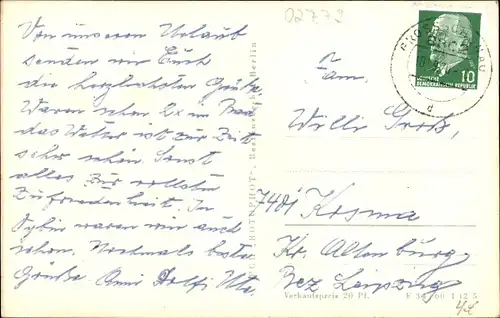 02773
Von unserem Urlaub
senden wir Euch
die herzlichsten Grüße.
Waren schon 2x im Bad
das Wetter ist zur Zeit
sehr schön. Sonst
alles zur vollsten
Zufriedenheit. In
Oybin waren wir auch
schon. Nochmals beste
Grüße Anni Dolfi Ute.
DEUTSCHE
DEMOKRATISCHE REPUBLIK
10
Fam.
Willi Groß,
7401 Kosma
Kr. Altenburg
Bez Leipzig
Verkaufspreis 20 Pf.